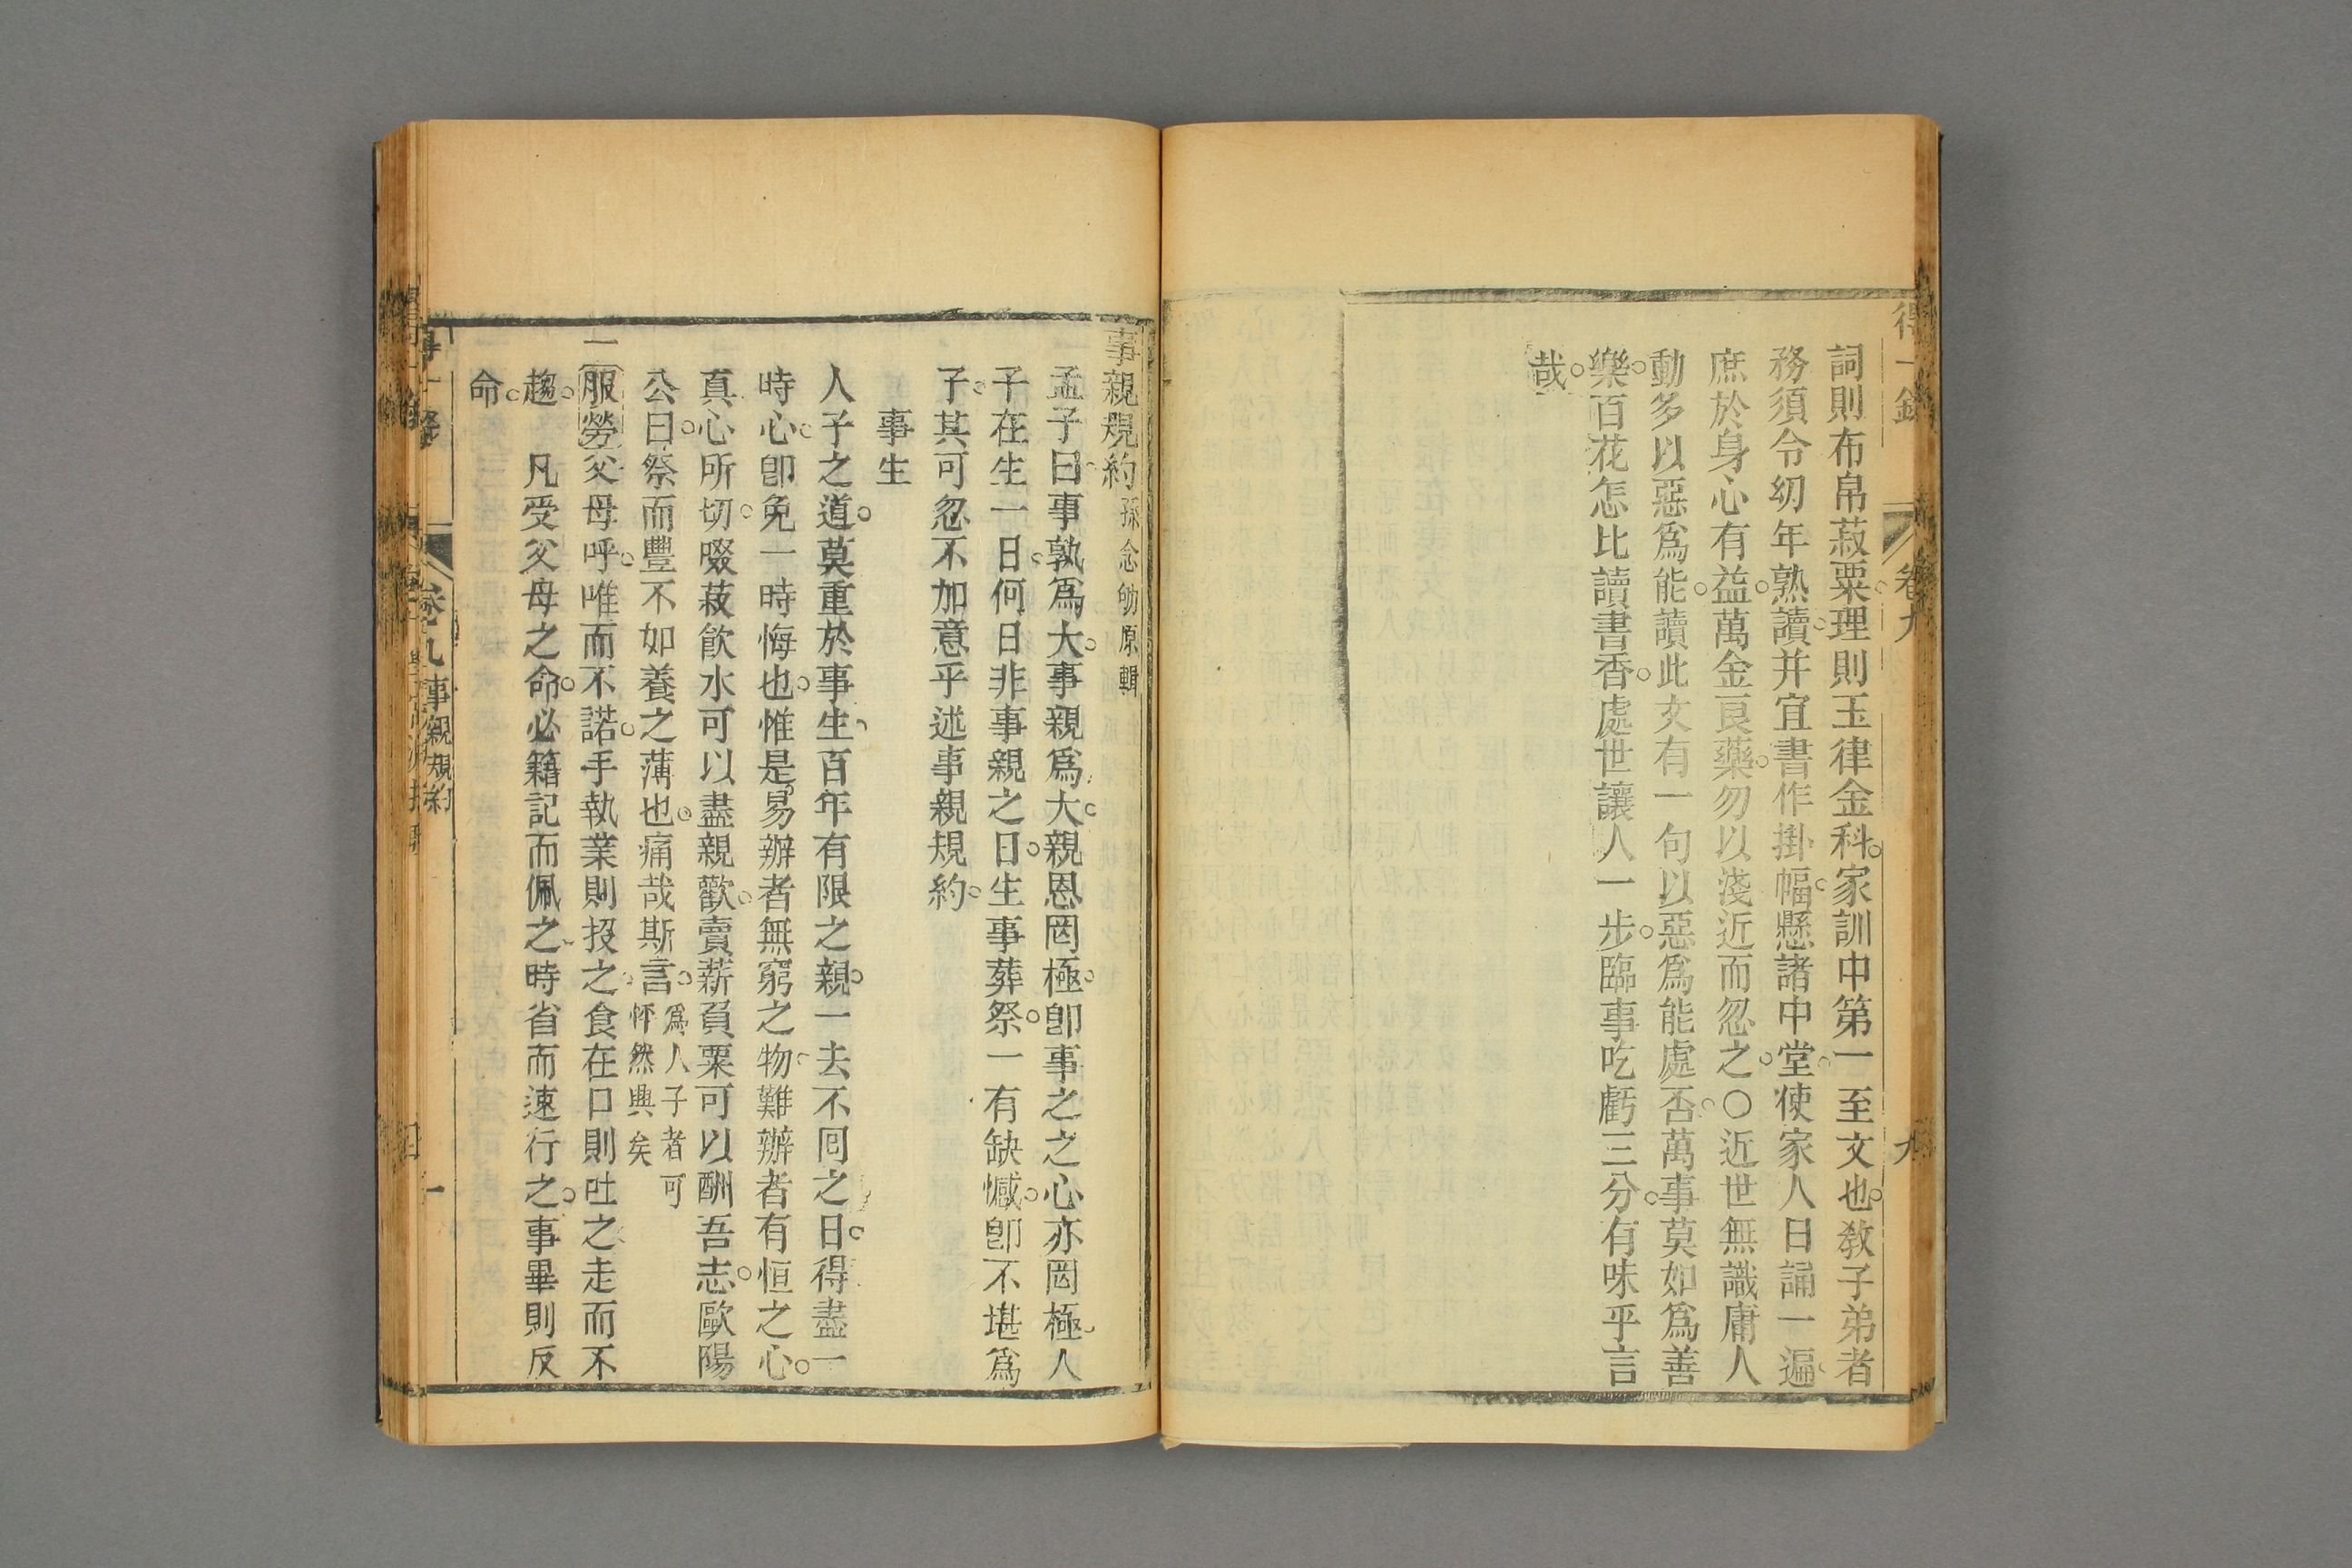 得一錄
卷九
九
詞則布帛菽粟理則玉律金科。家訓中第一至文也。敎子弟者
務須令幼年熟讀。并宜書作掛幅。懸諸中堂。使家人日誦一遍。
庶於身心有益。萬金良藥。勿以淺近而忽之。〇近世無識庸人
動多以惡爲能。讀此文有一句以惡爲能處否。萬事莫如爲善
樂。百花怎比讀書香。處世讓人一步。臨事吃虧三分。有味乎言
哉。
事親規約 孫念劬原輯
孟子曰。事孰爲大。事親爲大。親恩罔極。卽事之之心亦罔極。人
子在生一日。何日非事親之日。生事葬祭。一有缺憾。卽不堪爲
子。其可忽不加意乎。述事親規約。
事生
人子之道。莫重於事生。百年有限之親。一去不囘之日。得盡一
時心。卽免一時悔也。惟是易辦者無窮之物。難辦者有恒之心。
真心所切。啜菽飮水可以盡親歡。賣薪負粟可以酬吾志。歐陽
公曰。祭而豐不如養之薄也。痛哉斯言。爲人子者可怦然興矣
一服勞父母呼。唯而不諾。手執業則投之。食在口則吐之。走而不
趨。 凡受父母之命。必籍記而佩之。時省而速行之。事畢則反
命。
得一錄
卷九事親規約
一